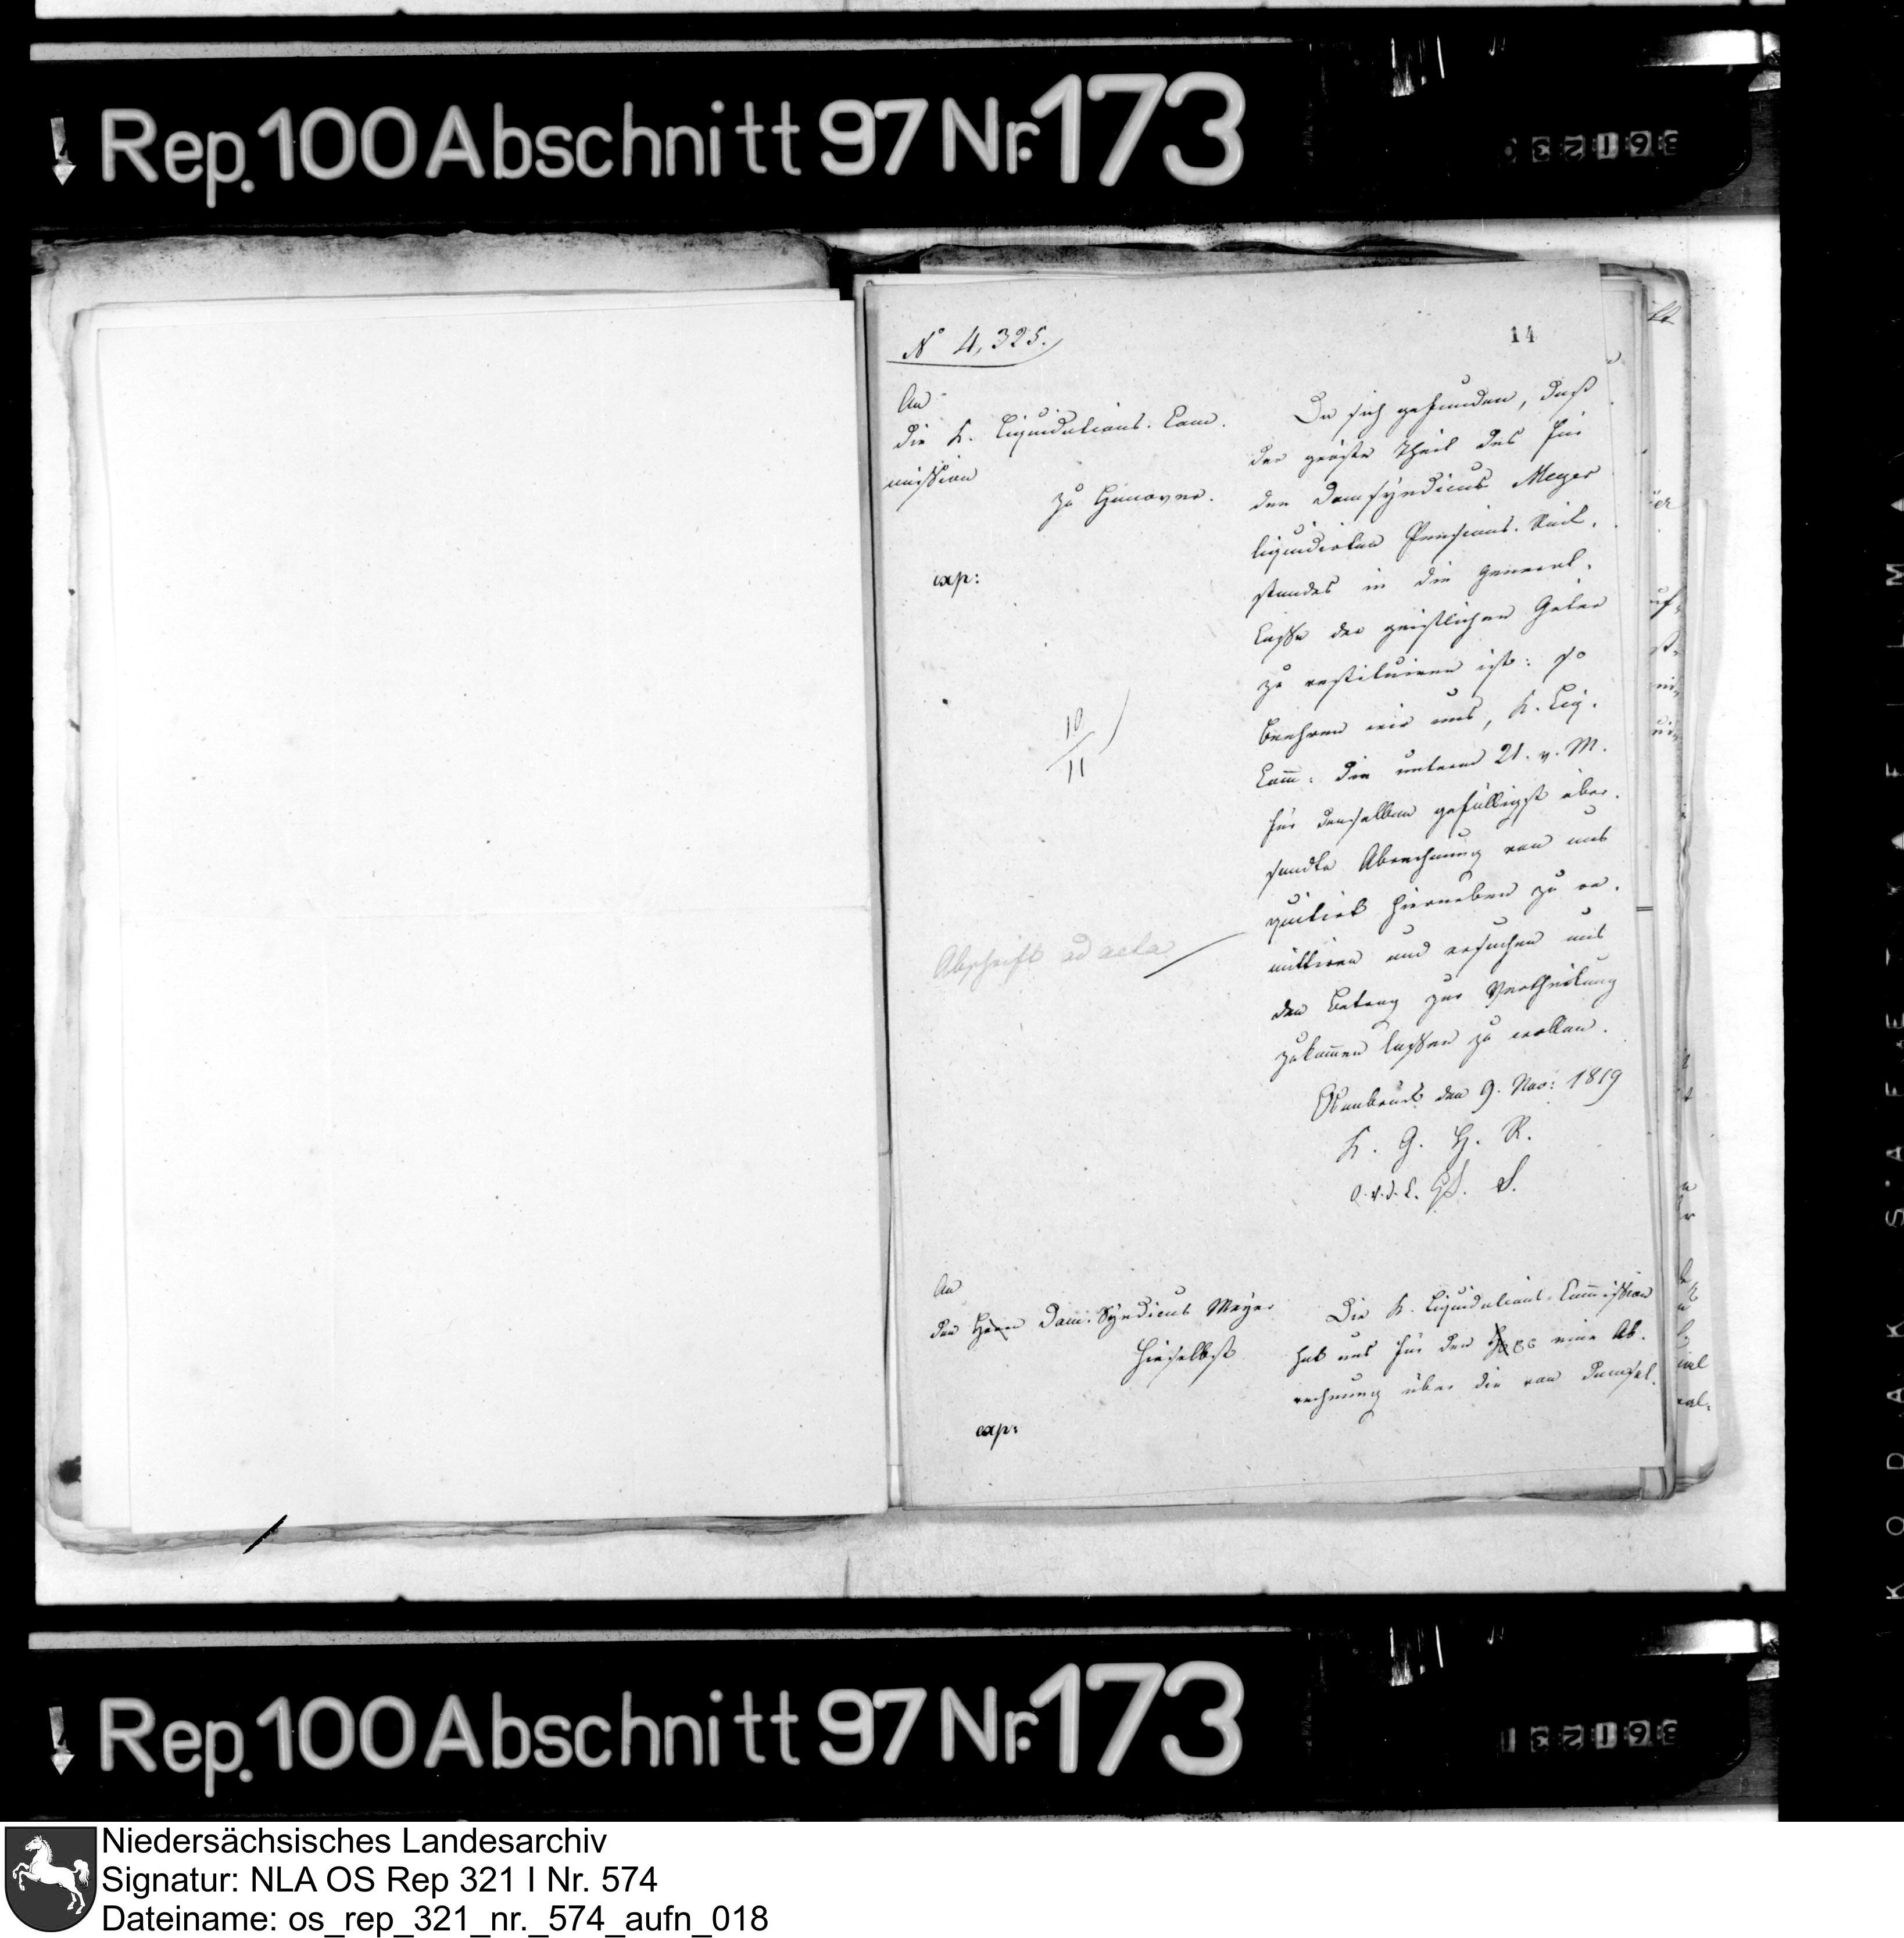 Rep. 100 Abschnitt 97 Nr. 173
No 4,325.
14
An
die K. Liquidations-Com-
mission
zu Hanover.
exp:
10
11
Abschrift ad acta
Da sich gefunden, daß
der größte Theil des für
den Domsyndicus Meyer
liquidirten Pensions-Rück-
standes in die General-
Casse der geistlichen Güter
zu restituiren ist: so
beehren wir uns, K. Liq.
Comm. die unterm 21. v. M.
für denselben gefälligst über-
sandte Abrechnung von uns
quitirt hierneben zu re-
mittiren und ersuchen uns
den Betrag zur Vertheilung
zukommen lassen zu wollen.
Osnabrück den 9. Nov: 1819
K. G. H. R.
An
den Herrn Dom-Syndicus Meyer
hieselbst
exp:
Die K. Liquidations-Commission
hat uns für den eine Ab-
rechnung über die von demsel-
Rep. 100 Abschnitt 97 Nr. 173
KODAK SAFETY FILM
Niedersächsisches Landesarchiv
Signatur: NLA OS Rep 321 I Nr. 574
Dateiname: os_rep_321_nr._574_aufn_018